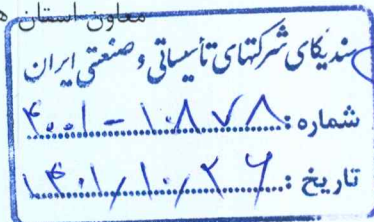 معاون استان ه
سندیکای شرکتهای تأسیساتی و صنعتی ایران
شماره : ۴۰۰۱-۱۰۸۷۸
تاریخ : ۱۴۰۱/۱۰/۲۶